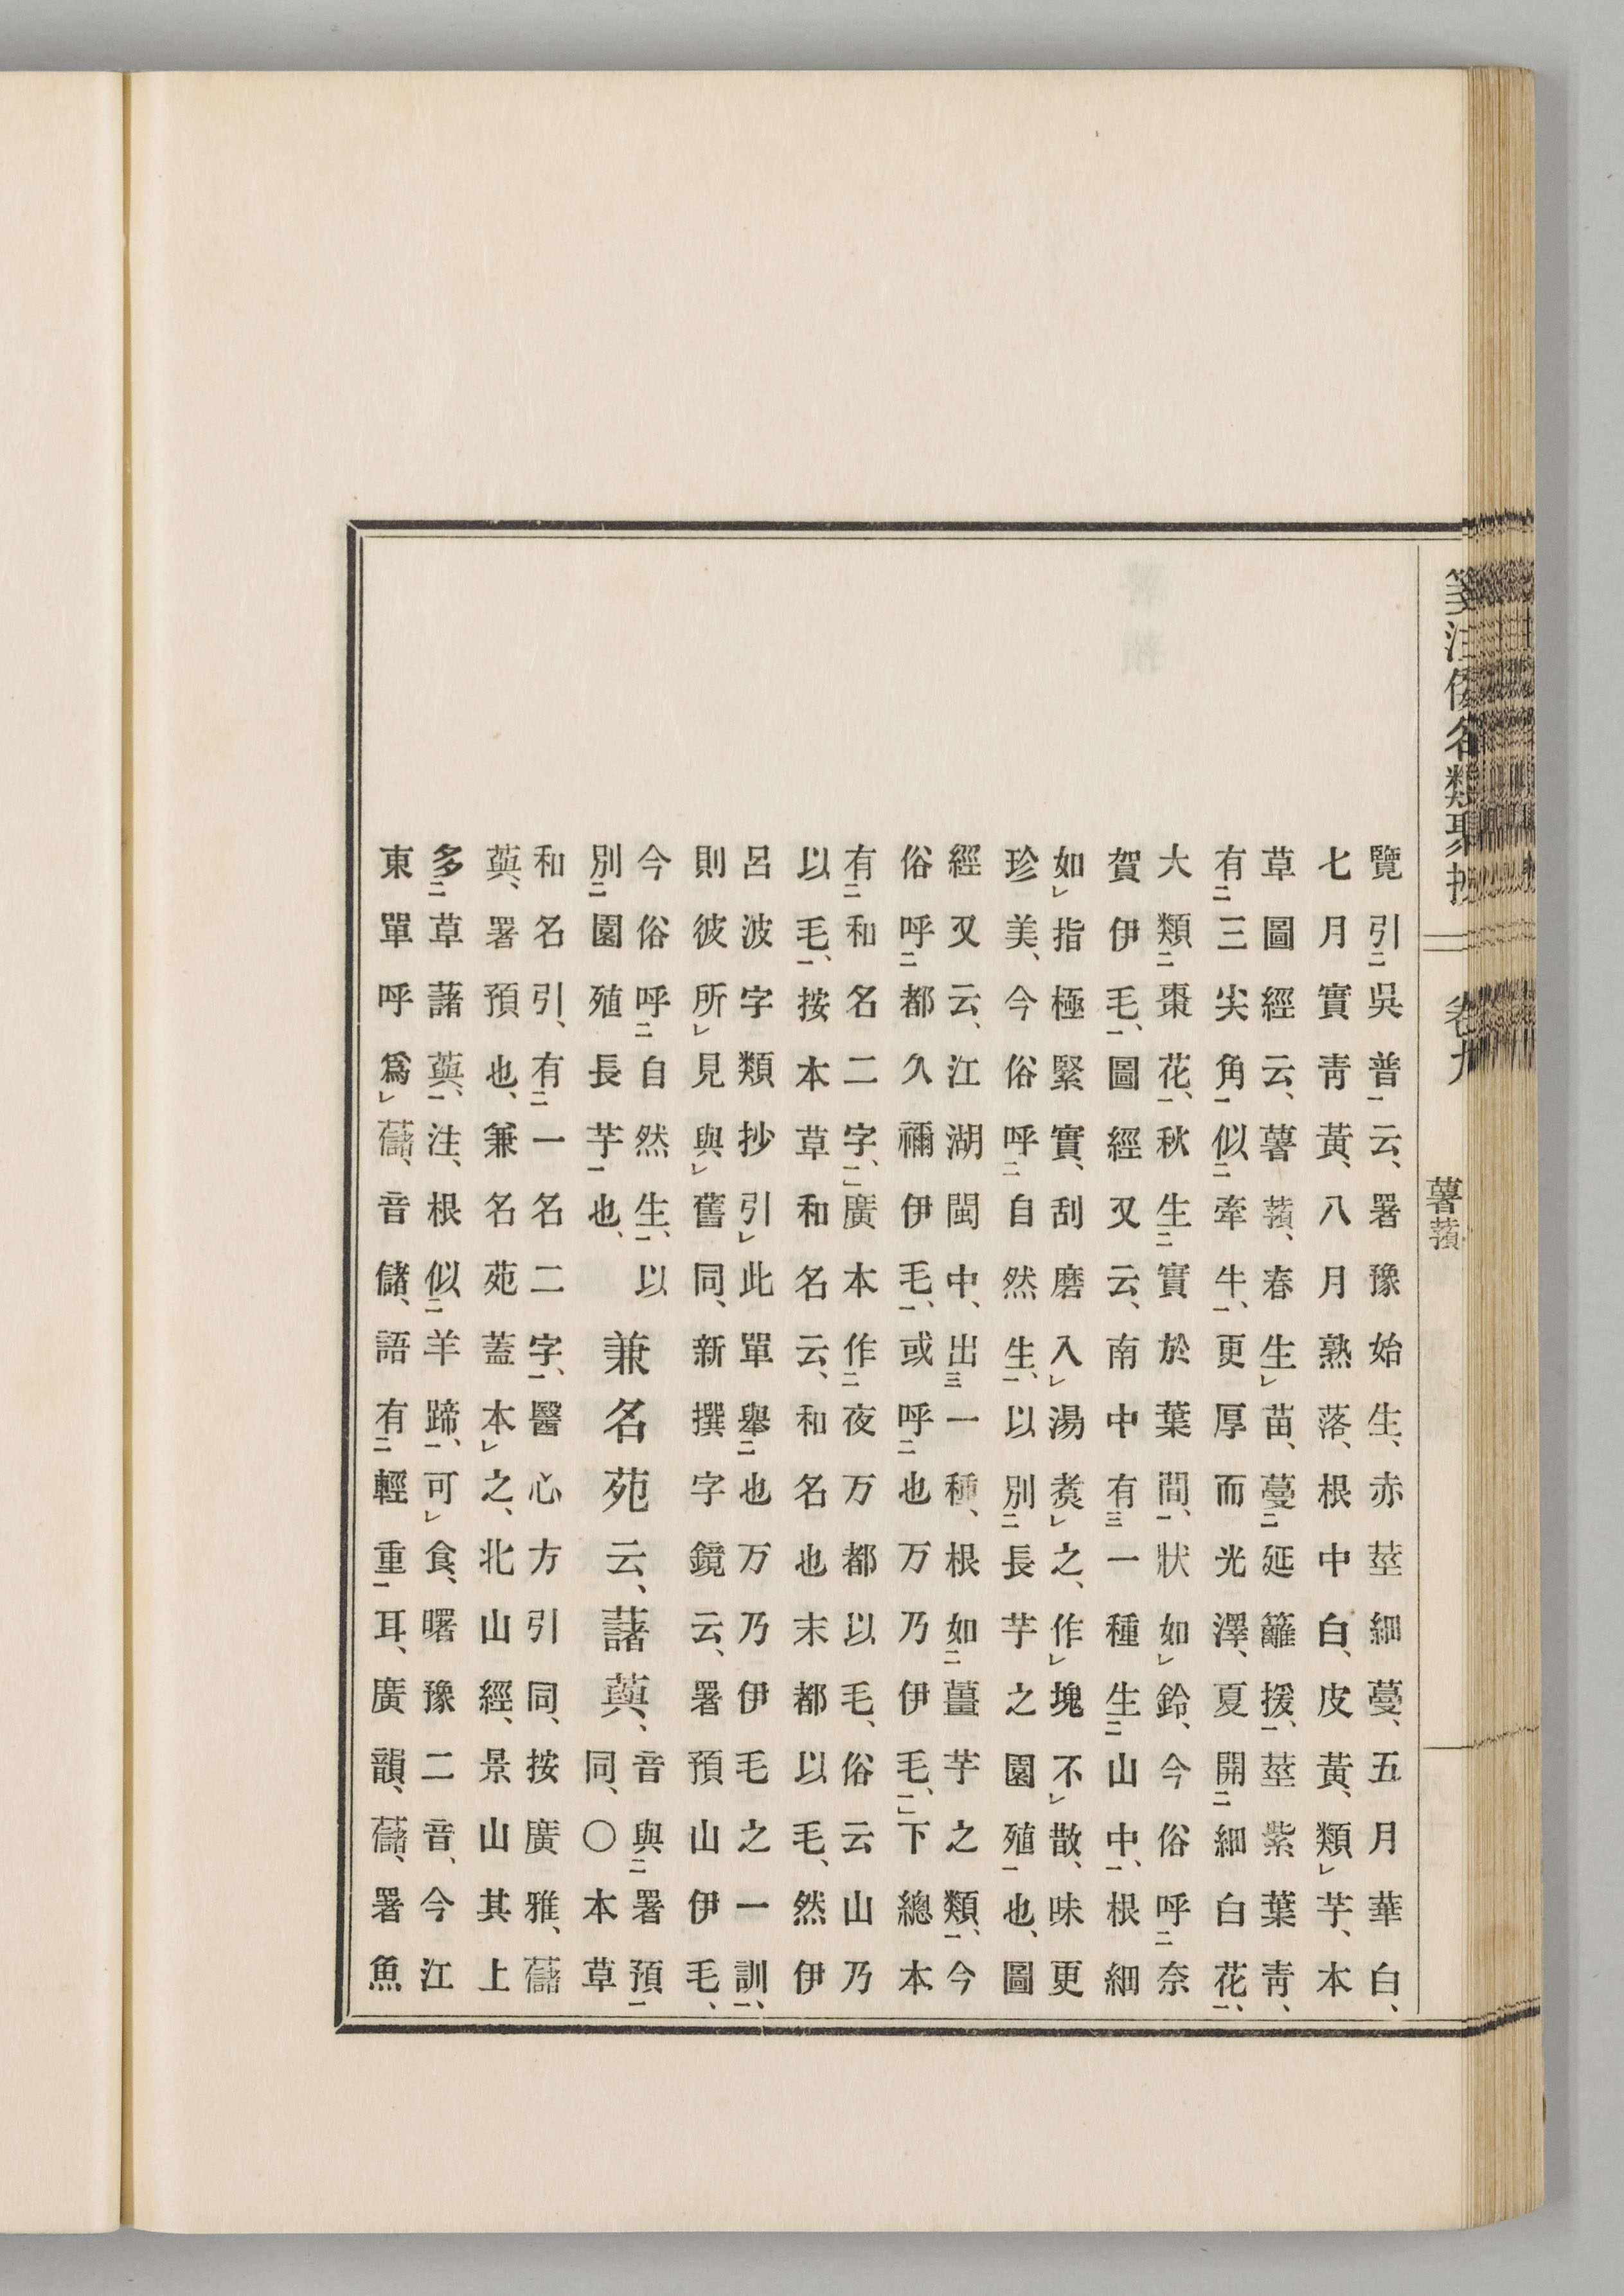 箋注倭名類聚抄 卷九 薯蕷
覽引㆓吳普㆒云、署豫始生、赤莖細蔓、五月華白、
七月實青黃、八月熟落、根中白、皮黃、類㆑芋、本
草圖經云、薯蕷、春生㆑苗、蔓㆓延籬援㆒、莖紫葉青、
有㆓三尖角㆒似㆓牽牛㆒、更厚而光澤、夏開㆓細白花㆒、
大類㆓棗花㆒、秋生㆓實於葉間㆒、狀如㆑鈴、今俗呼㆓奈
賀伊毛㆒、圖經又云、南中有㆔一種生㆓山中㆒、根細
如㆑指極緊實、刮磨入㆑湯煑㆑之、作㆑塊不㆑散、味更
珍美、今俗呼㆓自然生㆒、以別㆓長芋之園殖㆒也、圖
經又云、江湖閩中、出㆔一種、根如㆓薑芋之類㆒、今
俗呼㆓都久禰伊毛㆒、或呼㆓也万乃伊毛㆒、」下總本
有㆓和名二字㆒、」廣本作㆓夜万都以毛、俗云山乃
以毛㆒、按本草和名云、和名也末都以毛、然伊
呂波字類抄引㆑此單舉㆓也万乃伊毛之一訓㆒、
則彼所㆑見與㆑舊同、新撰字鏡云、署預山伊毛、
今俗呼㆓自然生㆒、以
別㆓園殖長芋㆒也、
兼名苑云、藷藇、
音與㆓署預㆒
同、〇本草
和名引、有㆓一名二字㆒、醫心方引同、按廣雅、
藇、署預也、兼名苑蓋本㆑之、北山經、景山其上
多㆓草藷藇㆒、注、根似㆓羊蹄㆒、可㆑食、曙豫二音、今江
東單呼爲㆑、音儲、語有㆓輕重㆒耳、廣韻、、署魚